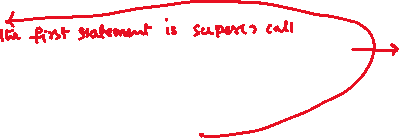 the first statement is super() call